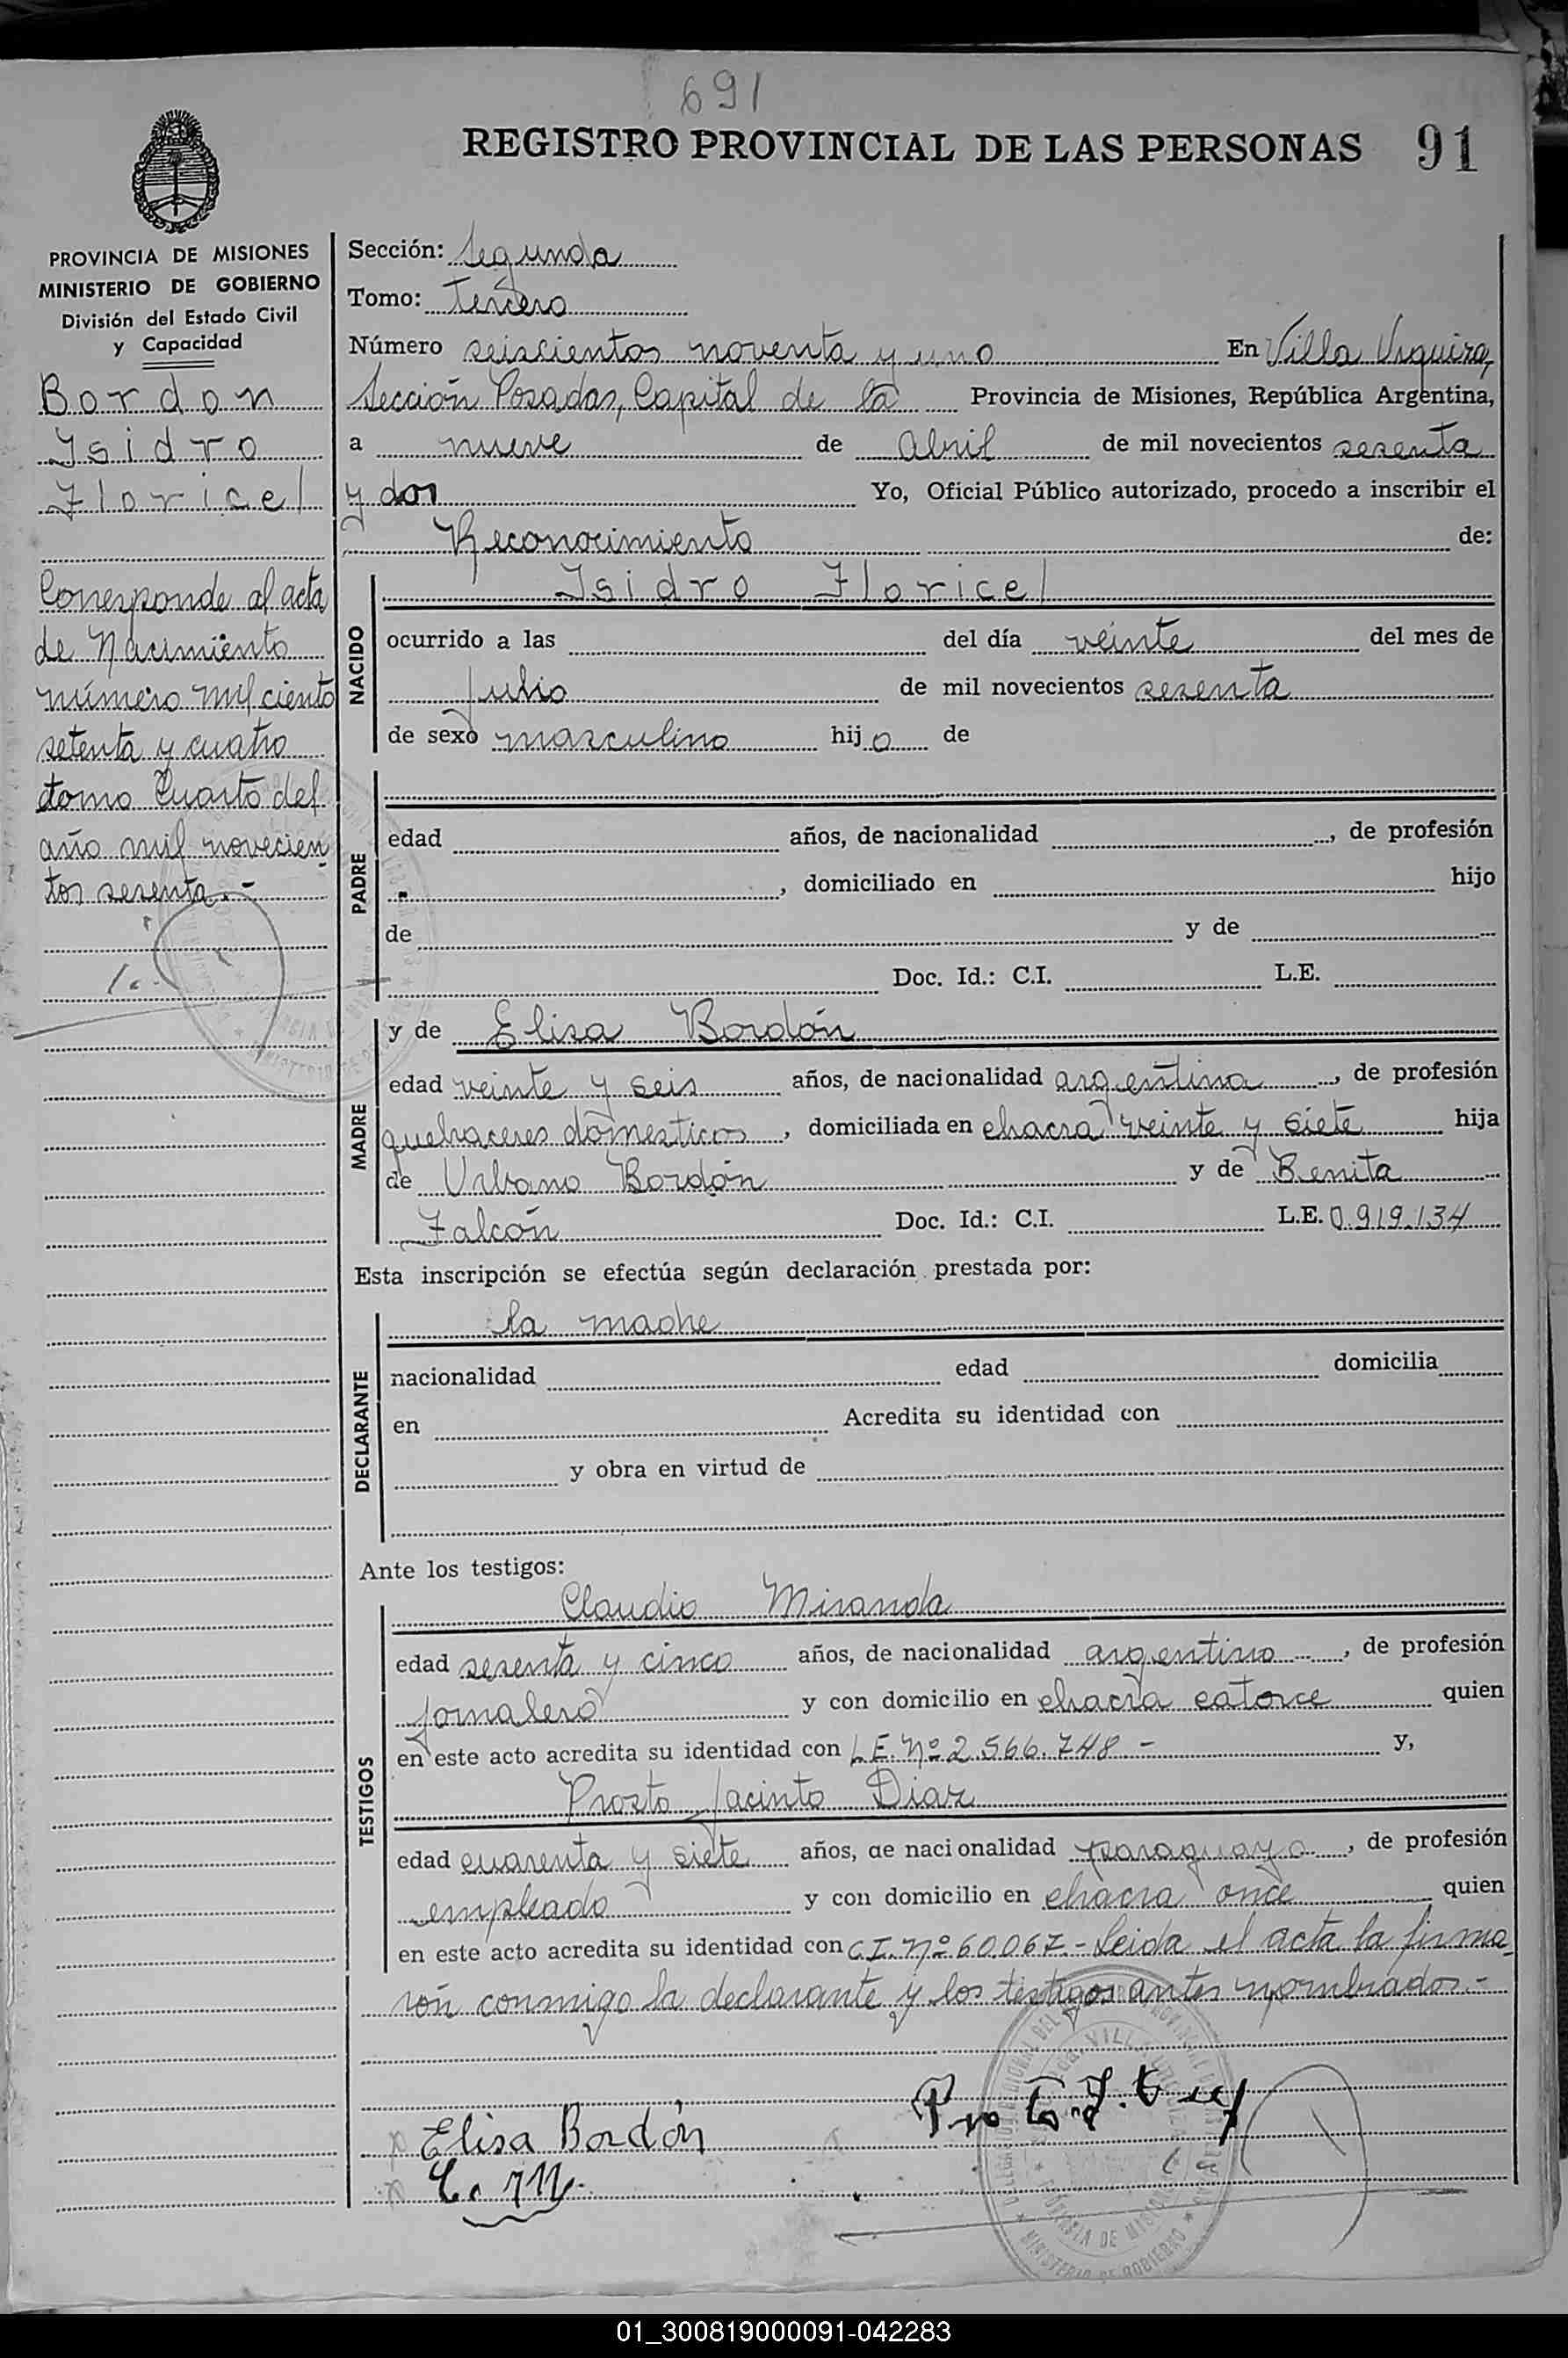 691
REGISTRO PROVINCIAL DE LAS PERSONAS 91
PROVINCIA DE MISIONES
MINISTERIO DE GOBIERNO
División del Estado Civil
y Capacidad
Bordon
Isidro
Floricel
Corresponde al acta
de Nacimiento
número mil ciento
setenta y cuatro
tomo Cuarto del
año mil novecien
tos sesenta.-
Sección: Segunda
Tomo: Tercero
Número seiscientos noventa y uno En Villa Urquiza,
Sección Posadas, Capital de la Provincia de Misiones, República Argentina,
a nueve de Abril de mil novecientos sesenta
y dos Yo, Oficial Público autorizado, procedo a inscribir el
Reconocimiento de:
NACIDO
Isidro Floricel
ocurrido a las del día veinte del mes de
Julio de mil novecientos sesenta
de sexo masculino hijo de
PADRE
edad años, de nacionalidad , de profesión
, domiciliado en hijo
de y de
Doc. Id.: C.I. L.E.
MADRE
y de Elisa Bordón
edad veinte y seis años, de nacionalidad argentina , de profesión
quehaceres domesticos , domiciliada en chacra veinte y siete hija
de Urbano Bordón y de Benita
Falcón Doc. Id.: C.I. L.E. 0.919.134
Esta inscripción se efectúa según declaración prestada por:
DECLARANTE
la madre
nacionalidad edad domicilia
en Acredita su identidad con
y obra en virtud de
Ante los testigos:
TESTIGOS
Claudio Miranda
edad sesenta y cinco años, de nacionalidad argentino , de profesión
jornalero y con domicilio en chacra catorce quien
en este acto acredita su identidad con L.E. Nº 2.566.748 - y,
Jacinto Diaz
edad cuarenta y siete años, de nacionalidad paraguayo , de profesión
empleado y con domicilio en chacra once quien
en este acto acredita su identidad con C.I. Nº 60067.- Leida el acta la firma
ron conmigo la declarante y los testigos antes nombrados.-
Elisa Bordón
C. M.
01_300819000091-042283